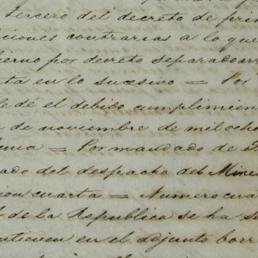 Tercero del decreto de pri
ciones contrarias a lo que
ierno por decreto separado
ta en lo sucesivo = Por
le dé el debido cumplimien
de noviembre de mil ocho
= Por mandado de
ado del despacho del
cion cuarta = Numero cua
de la Republica se ha
ntienen en el adjunto borr